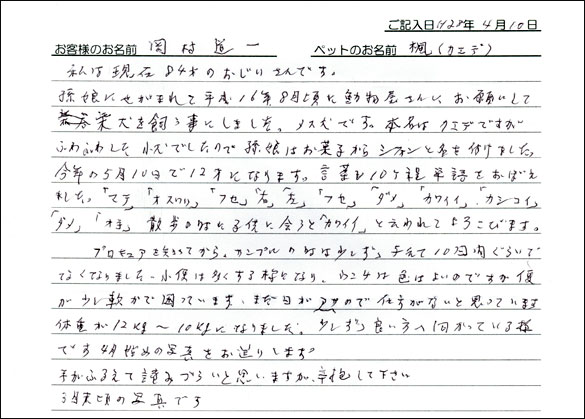 ご記入日 H28年 4月10日
お客様のお名前 岡村道一 ペットのお名前 楓(カエデ)
私は現在84才のおじいさんです。
孫娘にせがまれて平成16年8月頃に動物屋さんに、お願いして
柴犬を飼う事にしました。メス犬です。本名はカエデですが
ふわふわした小犬でしたので孫娘はお菓子からシフォンと名を付けました。
今年の5月10日で12才になります。言葉も10ヶ程単語をおぼえ
ました。「マテ」「オスワリ」「フセ」「右」「左」「フセ」「ダメ」「カワイイ」「カシコイ」
「ダメ」「オ手」散歩の時に子供に会うと「カワイイ」と云われてよろこびます。
プロキュアを 。カンプルの時は少しずつ与えて10日間ぐらいで
なくなりました。小便は多くする様になり、ウンチは色はよいのですが便
が少し軟かで困っています。まだ日が ので仕方がないと思っています
体重が12kg〜10kgになりました。少しずつ良い方へ向かっている様
です4月始めの写真をお送りします。
手がふるえて読みづらいと思いますが、辛抱して下さい
3月末頃の写真です